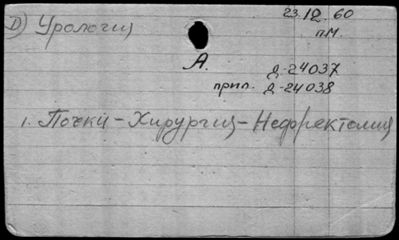 23.12.60
D) Урология
пм.
А.
Д-24037
прил. Д-24038
1. Почки - Хирургия - Нефректомия